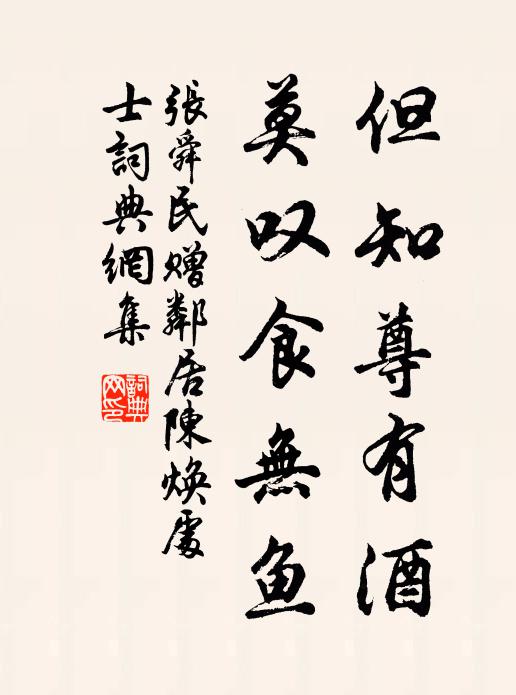 但知尊有酒
莫叹食無鱼
張舜民贈鄰居陳焕處
士詞典網集
詞典
网印